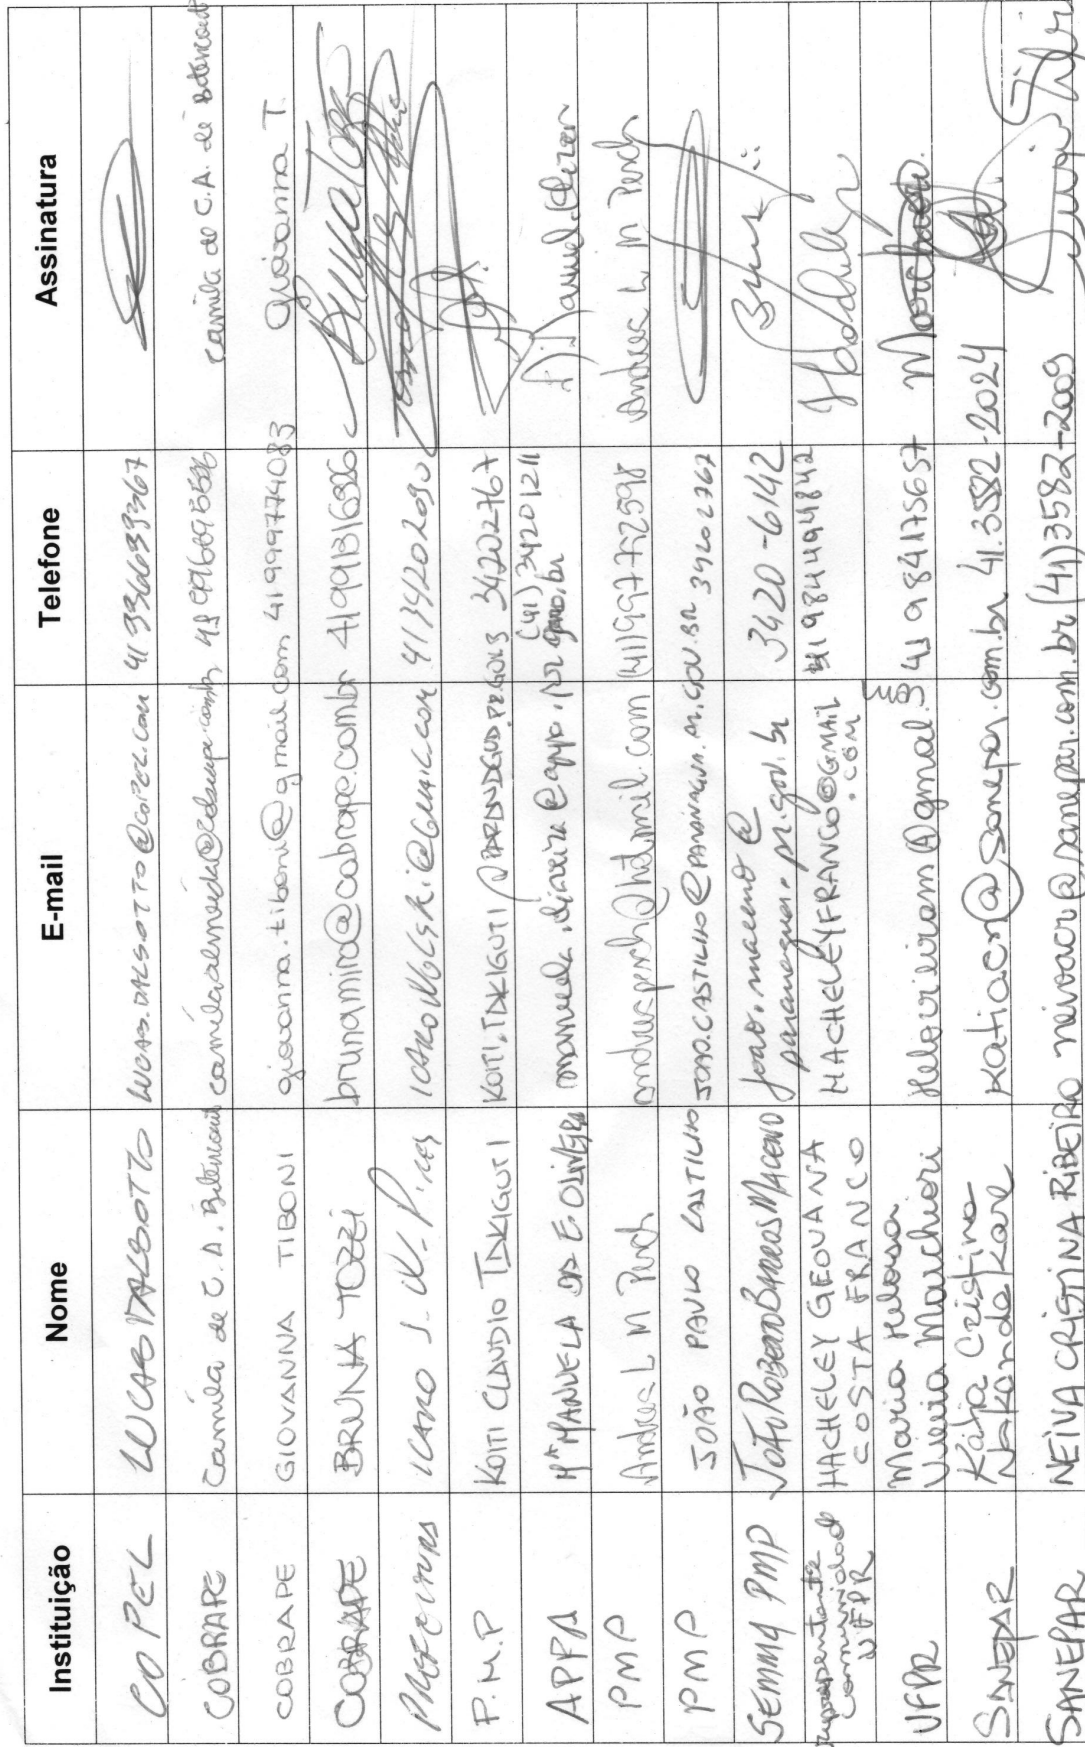 Instituição Nome E-mail Telefone Assinatura
COPEL LUCAS DALSOTTO LUCAS.DALSOTTO@COPEL.COM
COBRAPE Camila de C. A. Bitencourt camilaalmeida@cobrape.com.br Camila de C.A. de Bitencourt
COBRAPE GIOVANNA TIBONI giovanna.tiboni@gmail.com 41 999774083 Giovanna T.
COBRAPE BRUNA TOZZI brunamiro@cobrape.com.br 41991316986 Bruna Tozzi
PREFEITURA ICARO 41 34202090
P.M.P KOITI CLAUDIO TAKIGUTI 34202767
APPA Mª MANUELA DE OLIVEIRA (41) 34201211
PMP Andrea L M Pesch andreapesch@hotmail.com (41) 997772598 Andrea L M Pesch
PMP JOÃO PAULO CASTILHO JOAO.CASTILHO@PARANAGUA.PR.GOV.BR 34202767
SEMMA PMP JOÃO ROBERTO BARROS MACENO joao.maceno@
paranagua.pr.gov.br 3420-6142
representante
comunidade
UFPR HACHELEY GEOVANA
COSTA FRANCO HACHELEYFRANCO@GMAIL
.COM 41984494842
UFPR Maria Heloisa
Vieira Marchiori Heloivieiram@gmail. 41 984175657
SANEPAR Kátia Cristina
Nakandakare katiacn@sanepar.com.br 41.3582-2024
SANEPAR NEIVA CRISTINA RIBEIRO neivacr@sanepar.com.br (41) 3582-2009